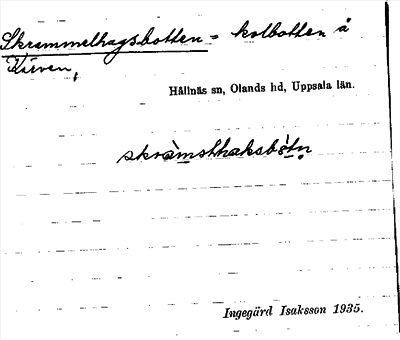 Skrammelhagsbotten = kolbotten å
Kärven,
Hållnäs sn, Olands hd, Uppsala län.
skràmslhaksbòtn
Ingegärd Isaksson 1935.